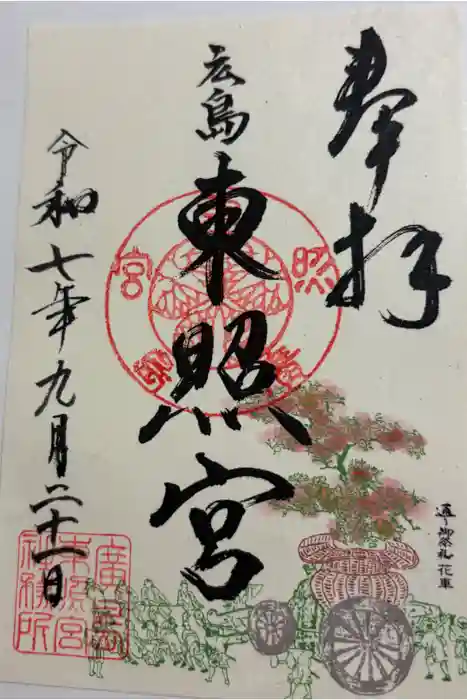 奉拝
広島
東照宮
令和七年九月二十一日
通り御祭礼 花車
廣島
東照宮
神務所